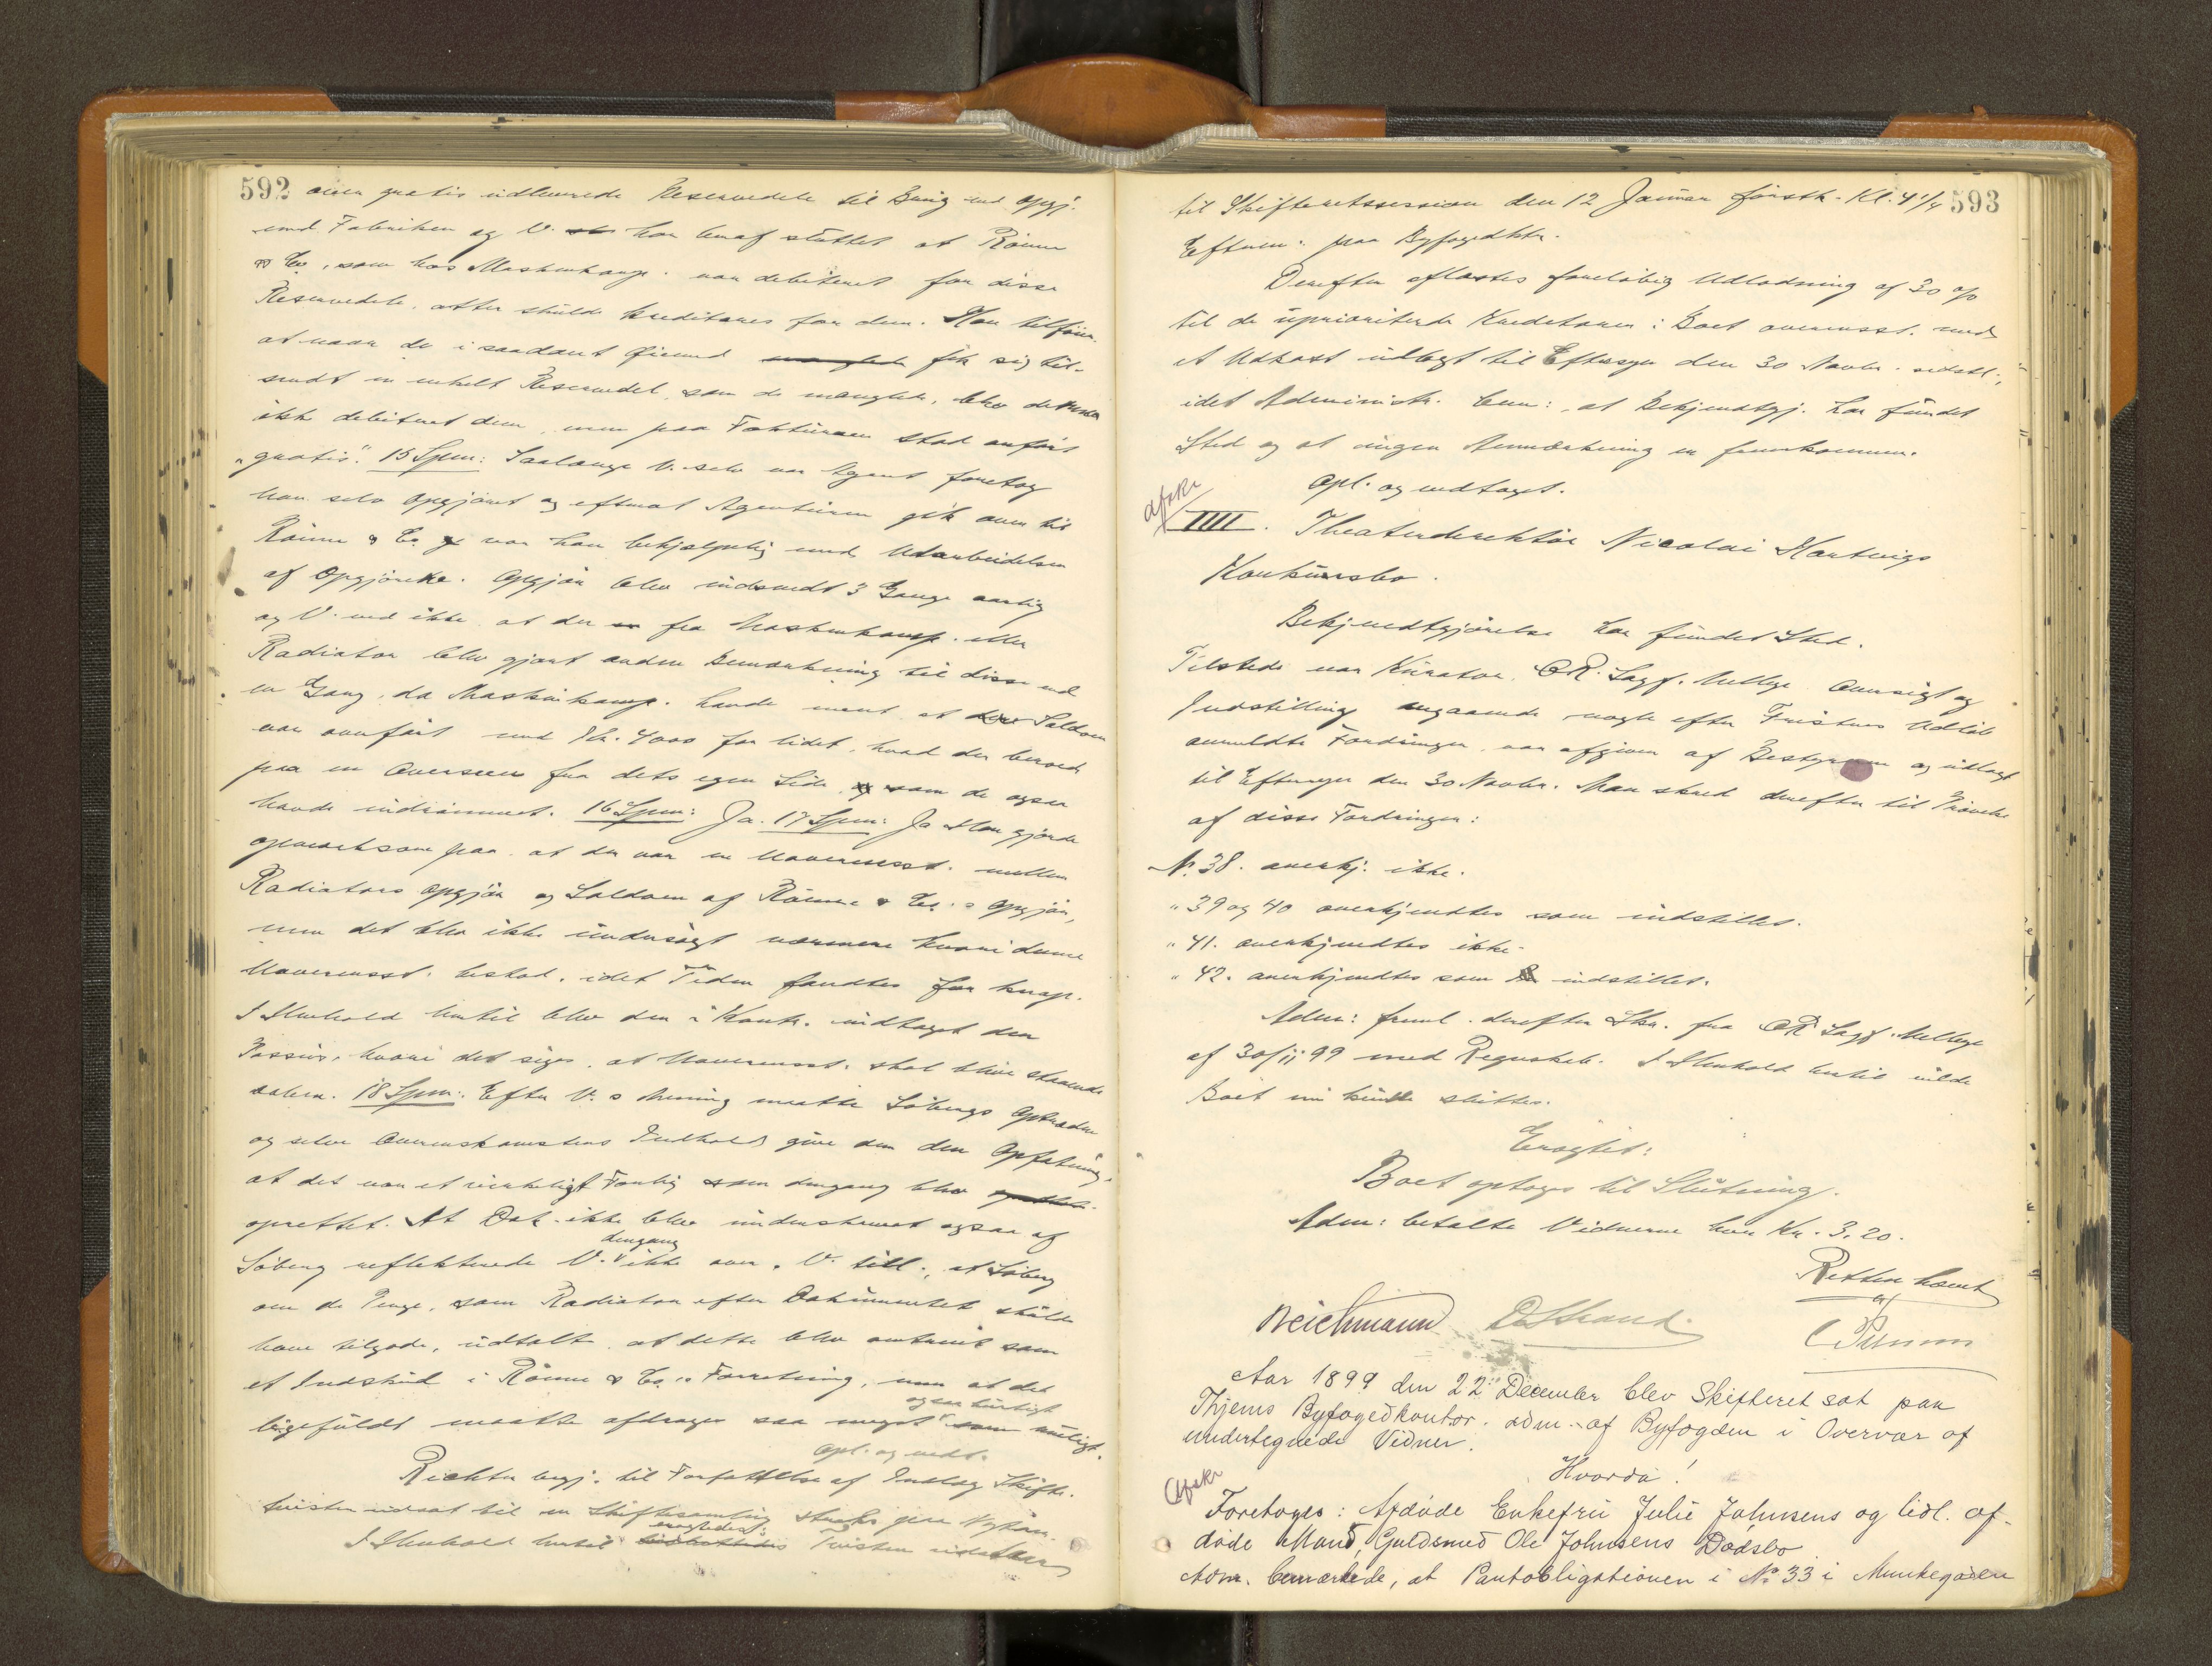 592
over gratis udleverede Reservedele til Brug ved Opgj.
med Fabriken og V. har heraf sluttet at Rönne
& Co, som hos Maskinkomp. var debiteret for disse
Reservedele, atter skulde krediteres for dem. Han tilföier
at naar de i saadant Öiemed fik sig til-
sendt en enkelt Reservedel, som de manglede, blev denne
ikke debiteret dem, men paa Fakturaen stod anfört
"gratis". 15 Spm: Saalænge V. selv var Agent foretog
han selv Opgjöret og efterat Agenturen gik over til
Rönne & Co. var han behjælpelig med Udarbeidelsen
af Opgjörene. Opgjör blev indsendt 3 Gange aarlig
og V. ved ikke at der fra Maskinkomp. eller
Radiator blev gjort anden Bemærkning til disse end
en Gang, da Maskinkomp. havde ment at Saldoen
var opfört med Kr. 4000 for lidet, hvad der beroede
paa en Overseen fra dets egen Side, som de ogsaa
havde indrömmet. 16 Spm: Ja. 17 Spm: Ja Han gjorde
opmerksom paa at der var en Uoverensst. mellem
Radiators Opgjör og Saldoen af Rönne & Co.s Opgjör,
men det blev ikke undersögt nærmere hvori denne
Uoverensst. bestod, idet Tiden fandtes for knap.
I Henhold hertil blev den i Kontr. indtaget den
Passus, hvori det siges, at Uoverensst. skal blive staaende
aaben. 18 Spm: Efter V.s Mening maatte Söbergs Optræden
og selve Overenskomstens Indhold give den den Opfatning,
at det var et virkeligt Forlig som dengang blev
oprettet. At Dok. ikke blev underskrevet ogsaa af
dengang
Söberg reflekterede V. ikke over. V. till., at Söberg
om de Penge, som Radiator efter Dokumentet skulde
have tilgode, udtalte at dette blev omtrent som
et Indskud i Rönne & Co.s Forretning, men at det
ogsaa hurtigst
ligefuldt maatte afdrages saa meget som muligt.
Opl. og vedt.
Richter begj. til Forfattelse af Indlæg Skifte-
tvisten udsat til en Skiftesamling straks paa Nyaar.
eragtedes:
I Henhold hertil Tvisten udsættes
593
til Skifteretssession den 12 Januar förstk. Kl. 4 1/4
Efterm. paa Byfogedktr.
Derefter oplæstes foreløbig Udlodning af 30 %
til de uprioriterede Kreditorer i Boet overensst. med
et Udkast udlagt til Eftersyn den 30 Novbr. sidstl.,
idet Administr. bem: at Bekjendtgj. har fundet
Sted og at ingen Anmærkning er fremkommen.
Opl. og vedtaget.
Afskr
IIII. Theaterdirektör Nicolai Hartvigs
Konkursbo.
Bekjendtgjörelse har fundet Sted.
Tilstede var Kurator, OR. Sagf. Mellbye. Oversigt og
Indstilling angaaende nogle efter Fristens Udløb
anmeldte Fordringer var afgiven af Bestyreren og udlagt
til Eftersyn den 30 Novbr. Man skred derefter til Prövelse
af disse Fordringer:
No 38. anerkj. ikke.
" 39 og 40 anerkjendtes som indstillet.
" 41. anerkjendtes ikke.
" 42. anerkjendtes som indstillet.
Adm: freml. derefter Skr. fra OR Sagf. Mellbye
af 30/11 99 med Regnskab. I Henhold hertil vilde
Boet nu kunne sluttes.
Eragtet:
Boet optages til Slutning.
Adm: betalte Vidnerne hver Kr. 3,20.
Retten hævet
Weichmann
Aar 1899 den 22de December blev Skifteret sat paa
Thjems Byfogedkontor. adm. af Byfogden i Overvær af
undertegnede Vidner.
Hvorda!
Afskr
Foretoges: Afdøde Enkefru Julie Johnsens og tidl. af-
døde Mand, Guldsmed Ole Johnsens Dødsbo
Adm. bemærkede, at Pantobligationen i No 33 i Munkegaden